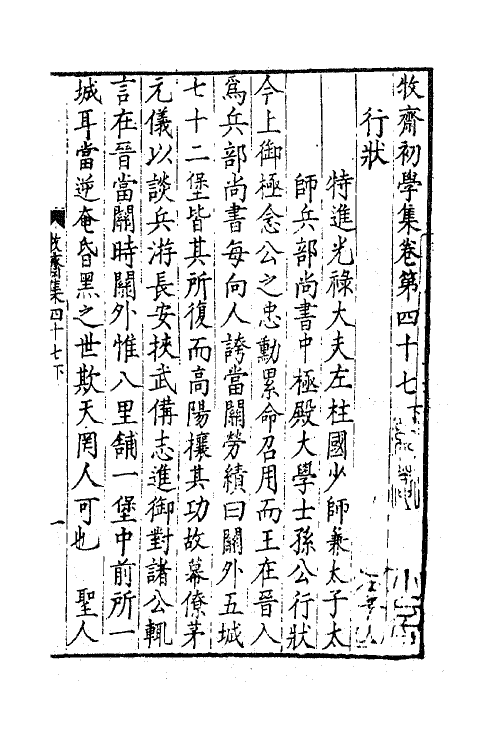 牧齋初學集卷第四十七下
行狀
特進光祿大夫左柱國少師兼太子太
師兵部尚書中極殿大學士孫公行狀
今上御極念公之忠勳累命召用而王在晉入
爲兵部尚書每向人誇當關勞績曰關外五城
七十二堡皆其所復而高陽攘其功故幕僚茅
元儀以談兵游長安挾武備志進御對諸公輒
言在晉當關時關外惟八里舖一堡中前所一
城耳當逆奄昏黑之世欺天罔人可也 聖人
牧齋集四十七下
一